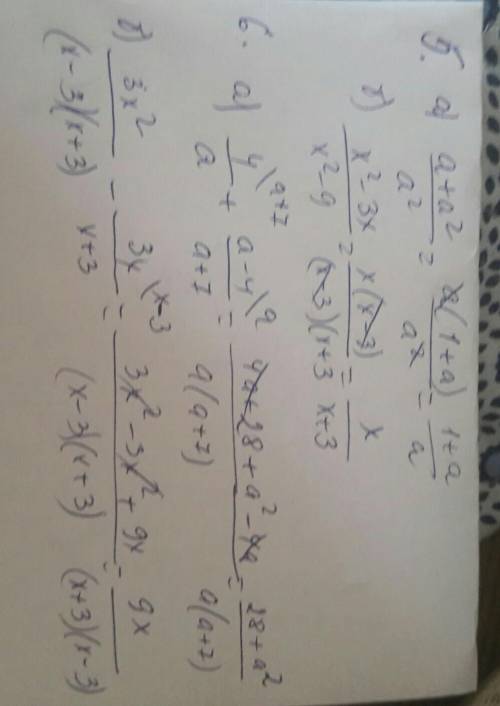 5. а) (a+a²)/a² = a(1+a)/a² = (1+a)/a
б) (x²-3x)/(x²-9) = x(x-3)/(x-3)(x+3 = x/(x+3)
6. а) 4\a+7/a + a-4\a/(a+7) = (4a+28+a²-4a)/a(a+7) = (28+a²)/a(a+7)
б) 3x²/(x-3)(x+3) - 3x\x-3/(x+3) = (3x²-3x²+9x)/(x-3)(x+3) = 9x/(x+3)(x-3)